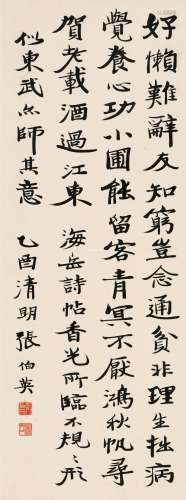 好懶難辭友知窮豈念通貧非理生拙病
覺養心功小圃能留客青冥不厭鴻秋帆尋
賀老載酒過江東 海岳詩帖香光所臨不規〻形
似東武亦師其意 乙酉清明張伯英